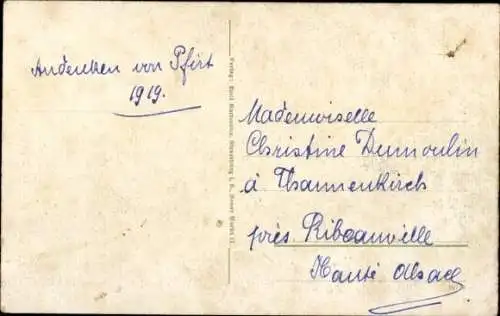 Andenken von Pfirt
1919.
Verlag: Emil Hartmann, Strassburg i. E., Neuer Markt
Mademoiselle
Christine Dumoulin
à Thannenkirch
près Riboauville
Haute Alsace